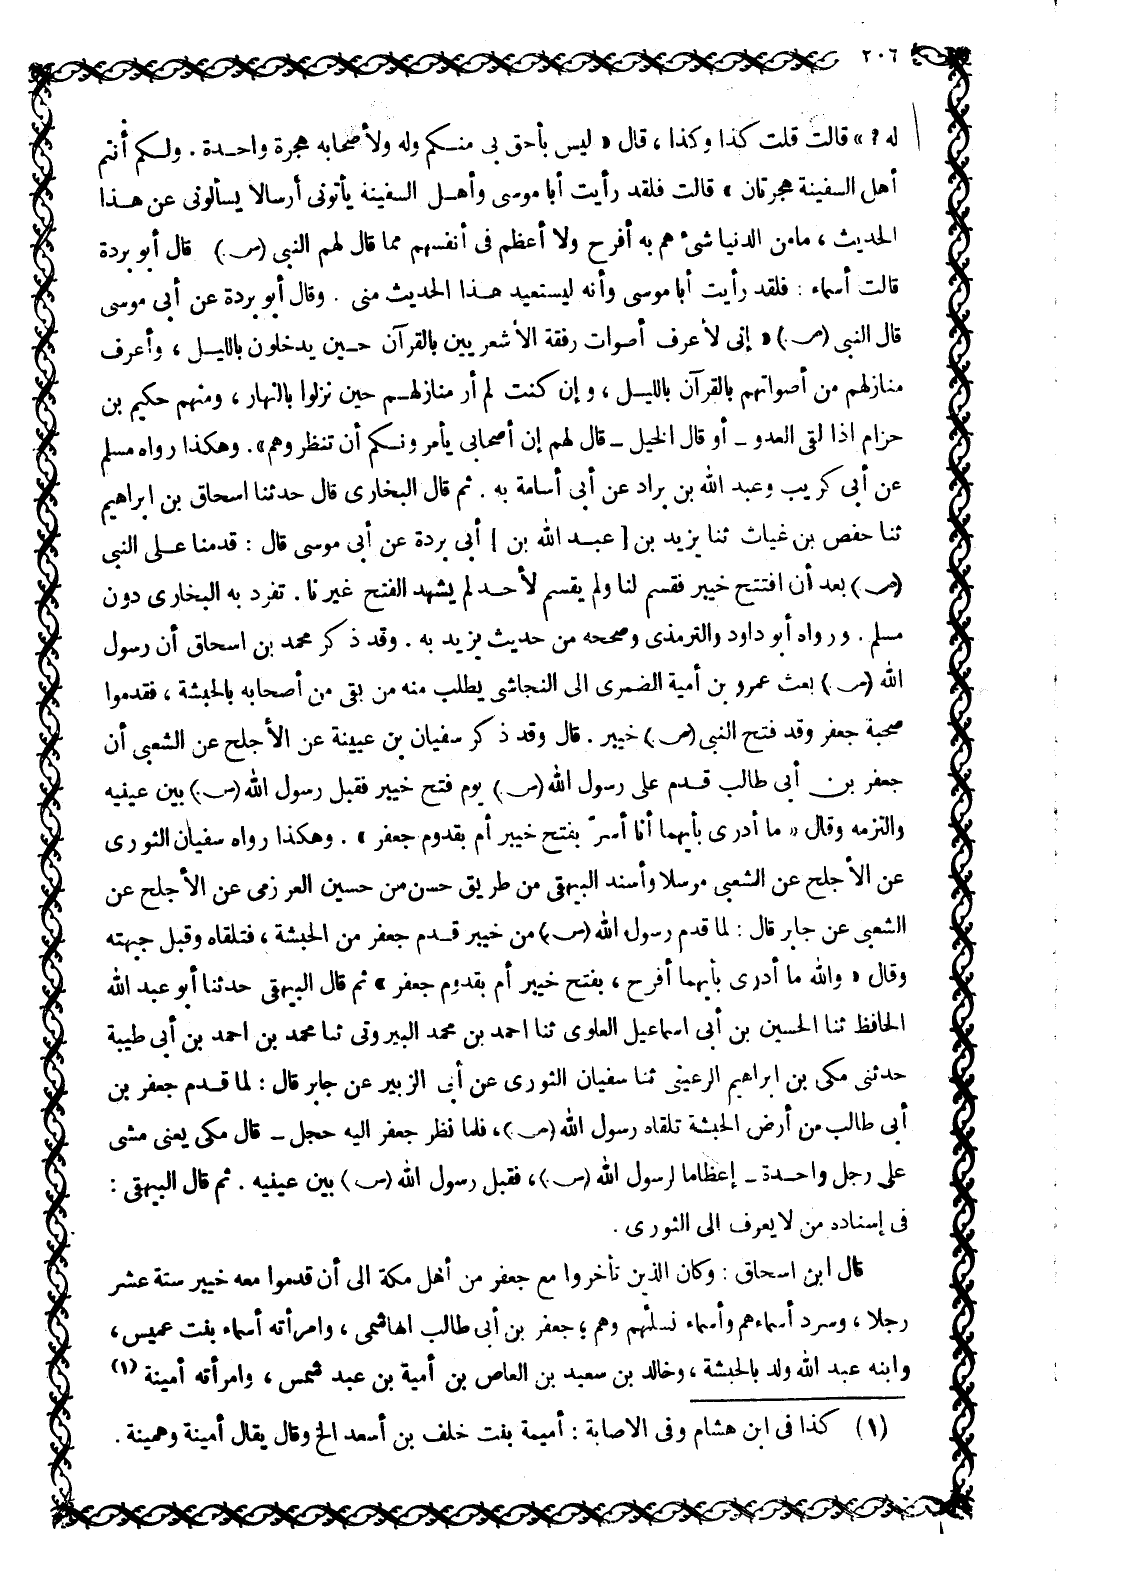 ٢٠٦
له ? » قالت قلت كذا وكذا ، قال « ليس بأحق بى منـكم وله ولأصحابه هجرة واحـدة . ولـكم أنتم
أهل السفينة هجرتان » قالت فلقد رأيت أبا موسى وأهـل السفينة يأتونى أرسالا يسألونى عن هـذا
الحديث ، مامن الدنيا شىء هم به أفرح ولا أعظم فى أنفسهم مما قال لهم النبى (س) قال أبو بردة
قالت أسماء : فلقد رأيت أبا موسى وأنه ليستعيد هـذا الحديث منى . وقال أبو بردة عن أبى موسى
قال النبى (س) « إنى لأعرف أصوات رفقة الأشعريين بالقرآن حـين يدخلون بالليـل ، وأعرف
منازلهم من أصواتهم بالقرآن بالليـل ، وإن كنت لم أر منازلهـم حين نزلوا بالنهار ، ومنهم حكيم بن
حزام اذا لقى العدو ــ أو قال الخيل ــ قال لهم إن أصحابى يأمرونـكم أن تنظروهم» . وهكذا رواه مسلم
عن أبى كريب وعبد الله بن براد عن أبى أسامة به . ثم قال البخارى قال حدثنا اسحاق بن ابراهيم
ثنا حفص بن غياث ثنا يزيد بن [ عبـد الله بن ] أبى بردة عن أبى موسى قال : قدمنا عـلى النبى
(س) بعد أن افتتح خيبر فقسم لنا ولم يقسم لأحـد لم يشهد الفتح غيرنا . تفرد به البخارى دون
مسلم . ورواه أبو داود والترمذى وصححه من حديث يزيد به . وقد ذكر محمد بن اسحاق أن رسول
الله (س) بعث عمرو بن أمية الضمرى الى النجاشى يطلب منه من بقى من أصحابه بالحبشة ، فقدموا
صحبة جعفر وقد فتح النبى (س) خيبر . قال وقد ذكر سفيان بن عيينة عن الأجلح عن الشعبى أن
جعفر بن أبى طالب قـدم على رسول الله (س) يوم فتح خيبر فقبل رسول الله (س) بين عينيه
والتزمه وقال « ما أدرى بأيهما أنا أسرّ بفتح خيبر أم بقدوم جعفر » . وهكذا رواه سفيان الثورى
عن الأجلح عن الشعبى مرسلا وأسند البيهقى من طريق حسن من حسين العرزمى عن الأجلح عن
الشعبى عن جابر قال : لما قدم رسول الله (س) من خيبر قـدم جعفر من الحبشة ، فتلقاه وقبل جبهته
وقال « والله ما أدرى بأيهما أفرح ، بفتح خيبر أم بقدوم جعفر » ثم قال البيهقى حدثنا أبو عبد الله
الحافظ ثنا الحسين بن أبى اسماعيل العلوى ثنا احمد بن محمد البيروتى ثنا محمد بن احمد بن أبى طيبة
حدثنى مكى بن ابراهيم الرعينى ثنا سفيان الثورى عن أبى الزبير عن جابر قال : لما قـدم جعفر بن
أبى طالب من أرض الحبشة تلقاه رسول الله (س) ، فلما نظر جعفر اليه حجل ــ قال مكى يعنى مشى
على رجل واحـدة ــ إعظاما لرسول الله (س) ، فقبل رسول الله (س) بين عينيه . ثم قال البيهقى :
فى إسناده من لا يعرف الى الثورى .
قال ابن اسحاق : وكان الذين تأخروا مع جعفر من أهل مكة الى أن قدموا معه خيبر ستة عشر
رجلا ، وسرد أسماءهم وأسماء نسائهم وهم ؛ جعفر بن أبى طالب الهاشمى ، وامرأته أسماء بنت عميس ،
وابنه عبد الله ولد بالحبشة ، وخالد بن سعيد بن العاص بن أمية بن عبد شمس ، وامرأته أمينة (١)
(١) كذا فى ابن هشام وفى الاصابة : أميمة بنت خلف بن أسعد الخ وقال يقال أمينة وهمينة .